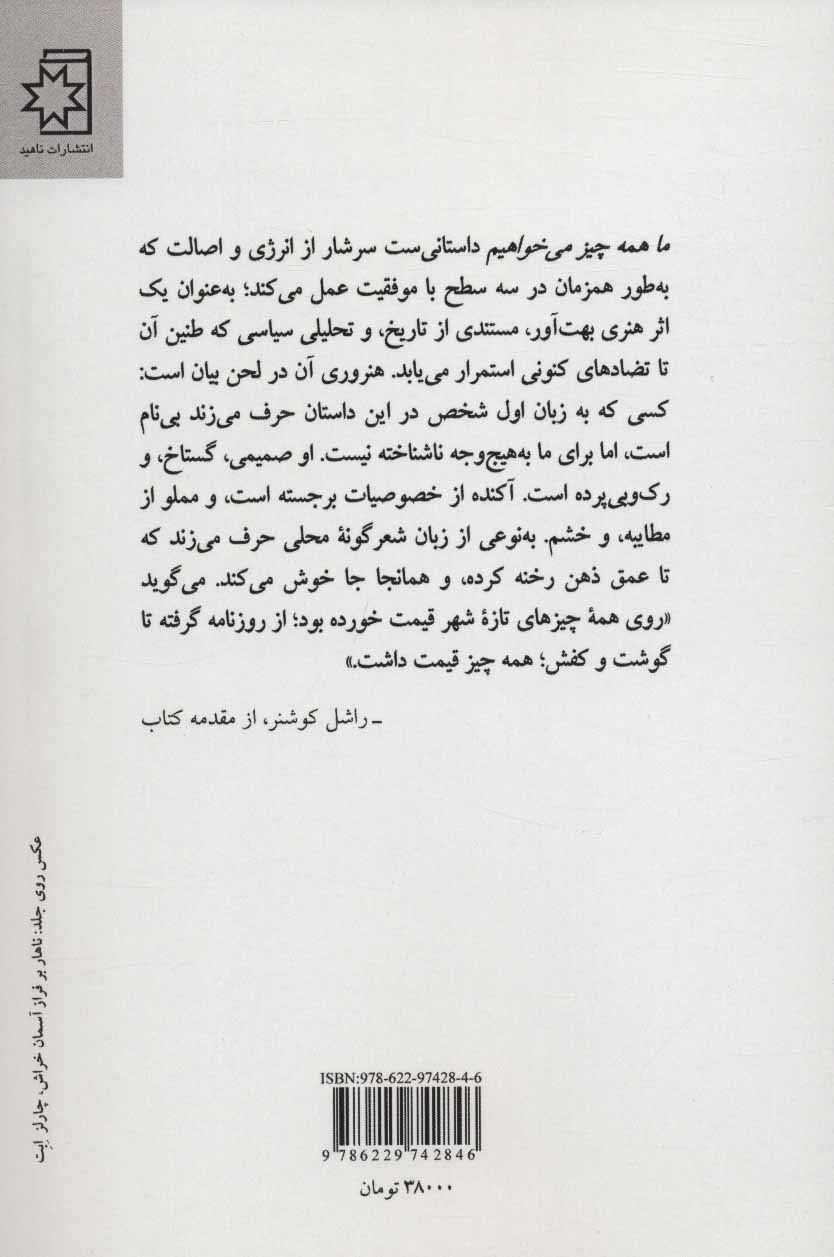 انتشارات ناهید
ما همه چیز می‌خواهیم داستانی‌ست سرشار از انرژی و اصالت که
به‌طور همزمان در سه سطح با موفقیت عمل می‌کند؛ به‌عنوان یک
اثر هنری بهت‌آور، مستندی از تاریخ، و تحلیلی سیاسی که طنین آن
تا تضادهای کنونی استمرار می‌یابد. هنروری آن در لحن بیان است:
کسی که به زبان اول شخص در این داستان حرف می‌زند بی‌نام
است، اما برای ما به‌هیچ‌وجه ناشناخته نیست. او صمیمی، گستاخ، و
رک‌وبی‌پرده است. آکنده از خصوصیات برجسته است، و مملو از
مطایبه، و خشم. به‌نوعی از زبان شعرگونهٔ محلی حرف می‌زند که
تا عمق ذهن رخنه کرده، و همانجا جا خوش می‌کند. می‌گوید
«روی همهٔ چیزهای تازهٔ شهر قیمت خورده بود؛ از روزنامه گرفته تا
گوشت و کفش؛ همه چیز قیمت داشت.»
ـ راشل کوشنر، از مقدمه کتاب
عکس روی جلد: ناهار بر فراز آسمان خراش، چارلز اِبِت
ISBN:978-622-97428-4-6
9 786229 742846
۳۸۰۰۰ تومان